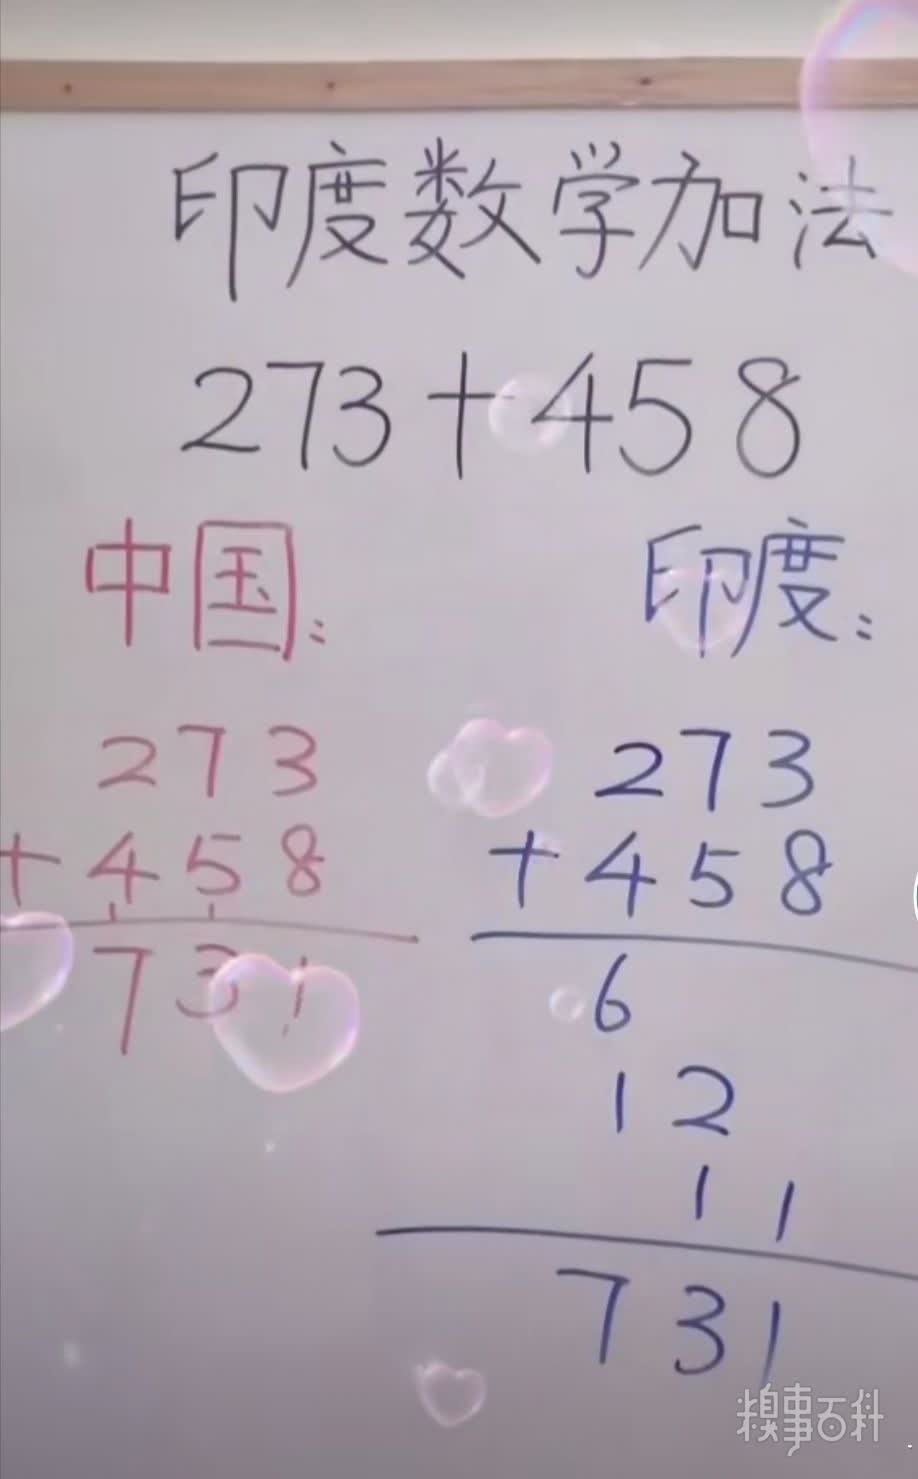 印度数学加法
273+458
中国:
273
+458
1 1
731
印度:
273
+458
6
12
11
731
糗事百科